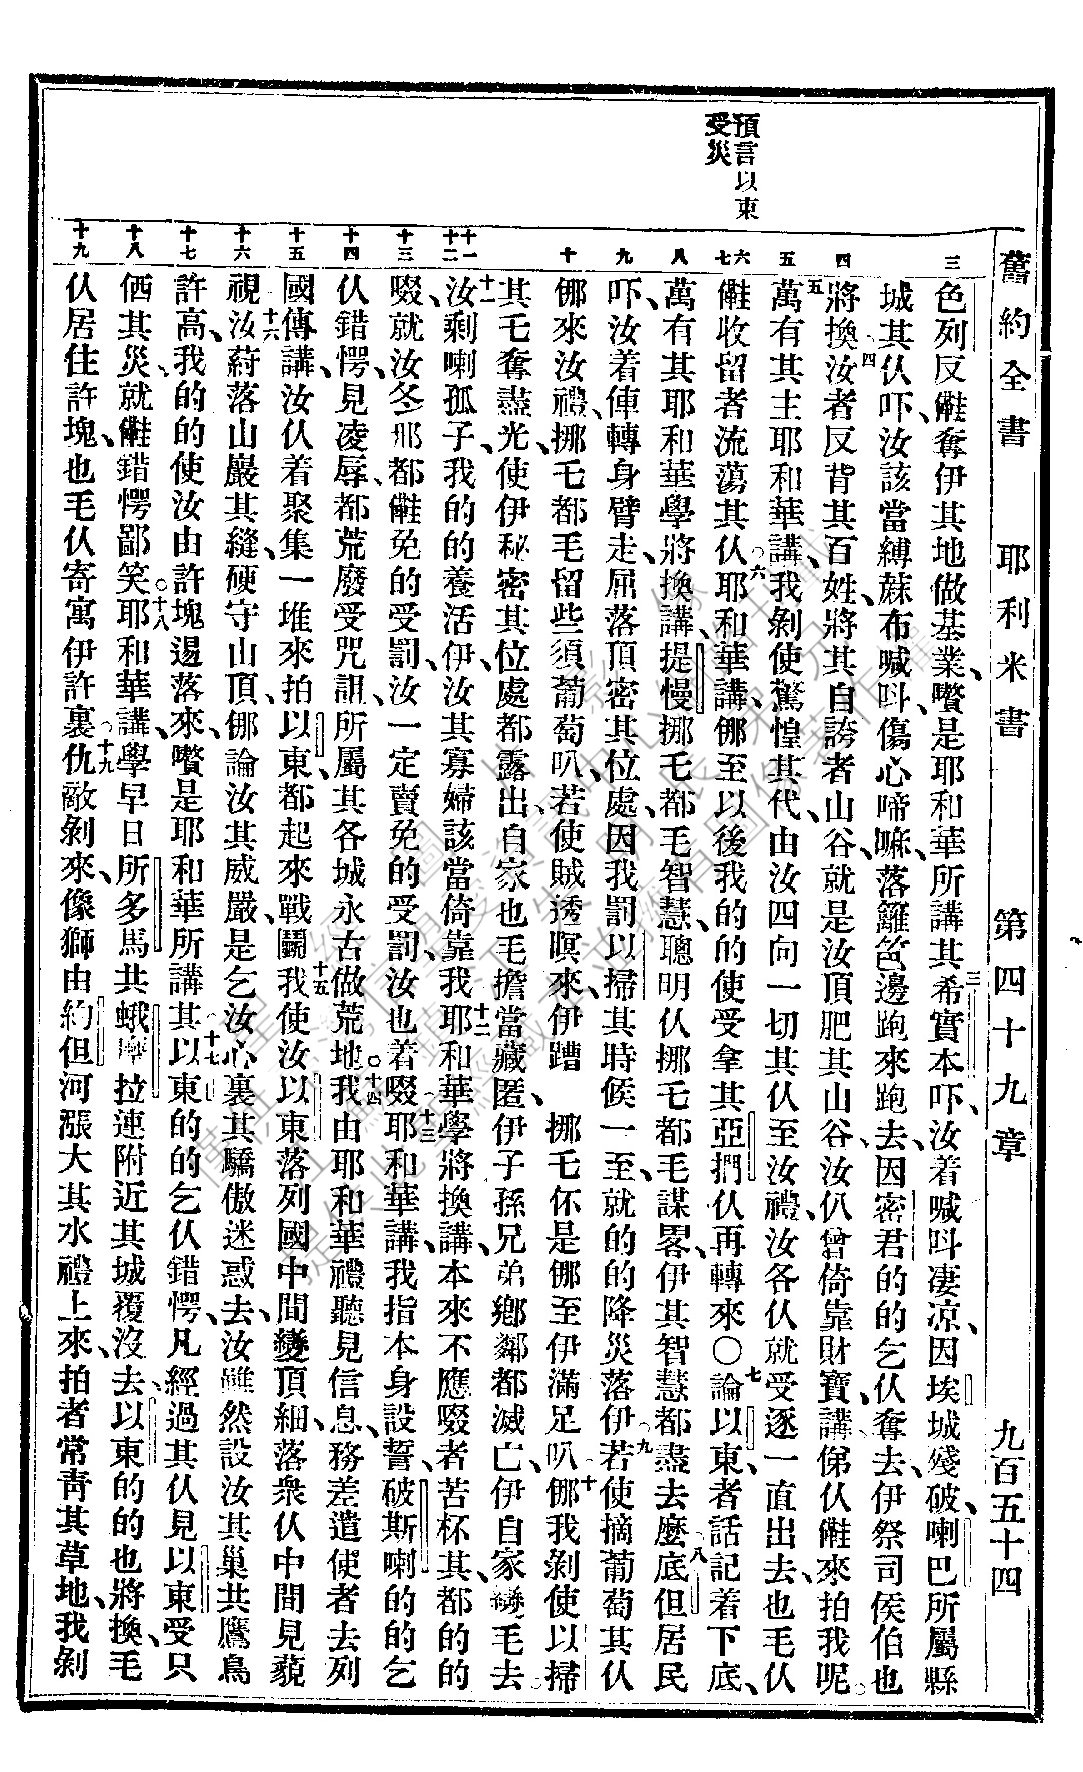 舊約全書　耶利米書　第四十九章　九百五十四
預言以東
受災
三
四
五
六
七
八
九
十
十一
十二
十三
十四
十五
十六
十七
十八
十九
色列反儺奪伊其地做基業、嚽是耶和華所講其。三希實本吓、汝着喊呌凄凉、因埃城殘破、喇巴所屬縣
城其仈吓、汝該當縛蔴布、喊呌傷心啼嘛、落籬笆邊跑來跑去、因密君的的乞仈奪去、伊祭司侯伯也
將換。四汝者反背其百姓、將其自誇者山谷、就是汝頂肥其山谷、汝仈曾倚靠財寶、講俤仈儺來拍我呢。
五萬有其主耶和華講、我剝使驚惶其代、由汝四向一切其仈至汝禮、汝各仈就受逐一直出去、也毛仈
儺收留者流蕩其仈。六耶和華講、㑚至以後我的的使受拿其亞捫仈再轉來〇七論以東、者話記着下底、
萬有其耶和華學將換講、提慢挪乇都毛智慧、聰明仈挪乇都毛謀畧、伊其智慧都盡去麽。八底但居民
吓、汝着俥轉身臂走、屈落頂密其位處、因我罰以掃其時候一至、就的的降災落伊。九若使摘葡萄其仈
㑚來汝禮、挪乇都毛留些須葡萄叭、若使賊透暝來、伊蹧挪乇伓是㑚至伊滿足叭。十㑚我剝使以掃
其乇奪盡光、使伊秘密其位處都露出、自家也毛擔當藏匿、伊子孫兄弟鄉鄰都滅亡、伊自家變毛去。
十一汝剩喇孤子、我的的養活伊、汝其寡婦該當倚靠我。十二耶和華學將換講、本來不應啜者苦杯其、都的的
啜、就汝冬那都儺免的受罰、汝一定賣免的受罰、汝也着啜。十三耶和華講、我指本身設誓、破斯喇的的乞
仈錯愕、見凌辱、都荒廢受咒詛、所屬其各城永古做荒地。十四我由耶和華禮聽見信息、務差遣使者去列
國傳講、汝仈着聚集一堆來拍以東、都起來戰鬪。十五我使汝以東落列國中間變頂細、落衆仈中間見藐
視。十六汝蒔落山巖其縫、硬守山頂、㑚論汝其威嚴、是乞汝心裏其驕傲迷惑去、汝雖然設汝其巢共鷹鳥
許高、我的的使汝由許塊逷落來、嚽是耶和華所講其。十七以東的的乞仈錯愕、凡經過其仈見以東受只
俩其災、就儺錯愕鄙笑。十八耶和華講、學早日所多馬共蛾摩拉連附近其城覆沒去、以東的的也將換、毛
仈居住許塊、也毛仈寄寓伊許裏。十九仇敵剝來、像獅由約但河漲大其水禮上來、拍者常靑其草地、我剝